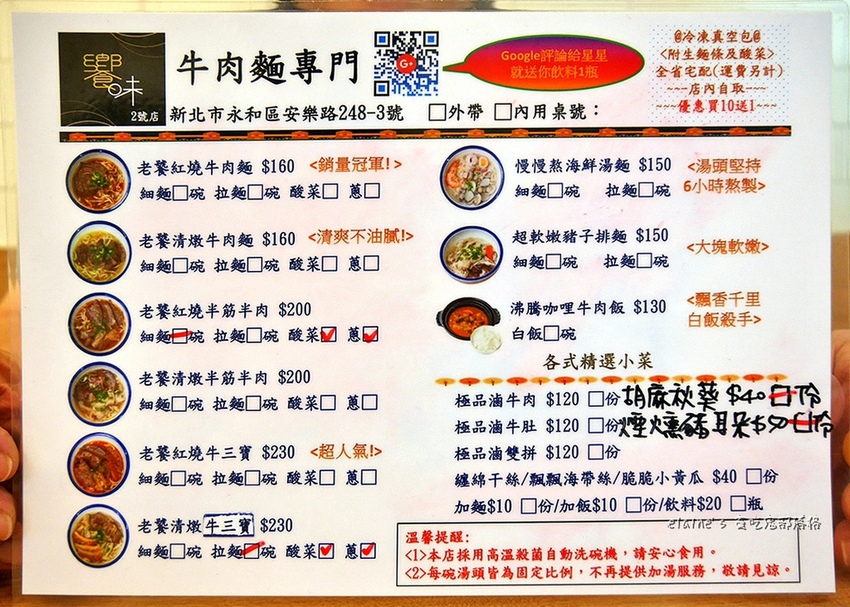 饗味
2號店
牛肉麵專門
G+
Google評論給星星
就送你飲料1瓶
@冷凍真空包@
<附生麵條及酸菜>
全省宅配(運費另計)
~~~店內自取~~~
~~~優惠買10送1~~~
新北市永和區安樂路248-3號 □外帶 □內用桌號：
老饕紅燒牛肉麵 $160 <銷量冠軍!>
細麵□碗 拉麵□碗 酸菜□ 蔥□
老饕清燉牛肉麵 $160 <清爽不油膩!>
細麵□碗 拉麵□碗 酸菜□ 蔥□
老饕紅燒半筋半肉 $200
細麵□碗 拉麵□碗 酸菜☑ 蔥☑
老饕清燉半筋半肉 $200
細麵□碗 拉麵□碗 酸菜□ 蔥□
老饕紅燒牛三寶 $230 <超人氣!>
細麵□碗 拉麵□碗 酸菜□ 蔥□
老饕清燉牛三寶 $230
細麵□碗 拉麵□碗 酸菜☑ 蔥☑
慢慢熬海鮮湯麵 $150
細麵□碗 拉麵□碗
<湯頭堅持
6小時熬製>
超軟嫩豬子排麵 $150
細麵□碗 拉麵□碗
<大塊軟嫩>
沸騰咖哩牛肉飯 $130
白飯□碗
<飄香千里
白飯殺手>
各式精選小菜
極品滷牛肉 $120 □份
胡麻秋葵 $40 □份
極品滷牛肚 $120 □份
煙燻豬耳朵$50□份
極品滷雙拼 $120 □份
纏綿干絲/飄飄海帶絲/脆脆小黃瓜 $40 □份
加麵$10 □份/加飯$10 □份/飲料$20 □瓶
elaine's 愛吃窩部落格
溫馨提醒:
<1>本店採用高溫殺菌自動洗碗機，請安心食用。
<2>每碗湯頭皆為固定比例，不再提供加湯服務，敬請見諒。